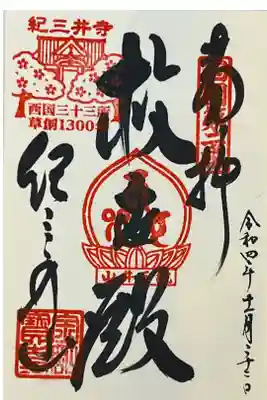 奉拝
西国第二番
令和四年十一月二十二日
救世殿
紀三井寺
西国三十三所
草創1300年
紀三井山